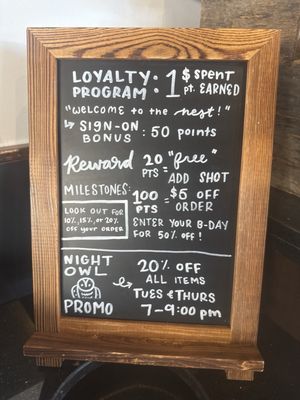 LOYALTY PROGRAM: 1 $ SPENT
pt. EARNED
"WELCOME to the nest!"
↳ SIGN-ON BONUS : 50 points
Reward MILESTONES:
20 PTS = "free" ADD SHOT
100 PTS = $6 OFF ORDER
LOOK OUT FOR
10%, 15%, or 20%
OFF your ORDER
ENTER YOUR B-DAY
FOR 50% OFF!
NIGHT OWL PROMO
20% OFF
ALL ITEMS
TUES & THURS
7-9:00pm